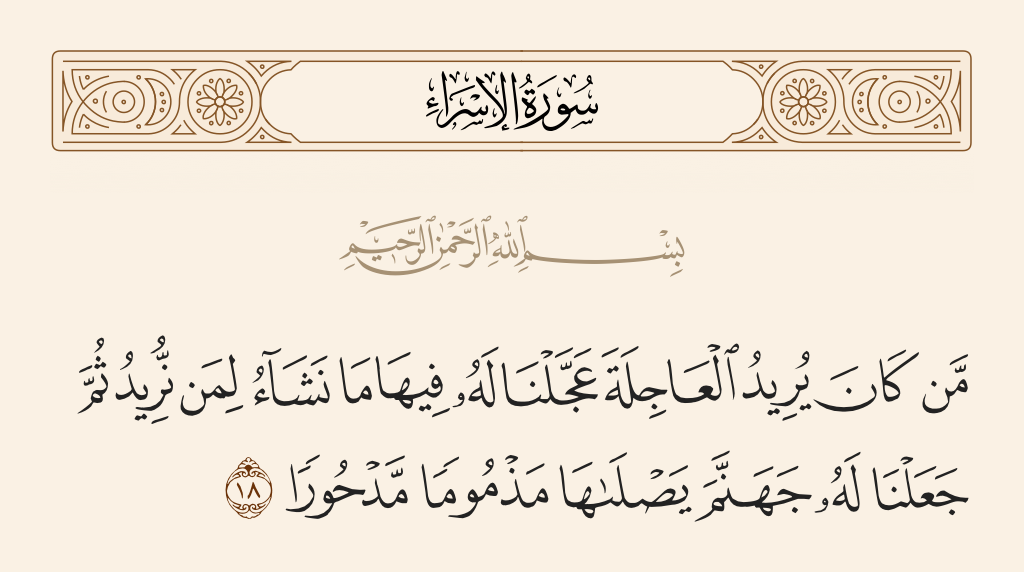 سُورَةُ الإِسْرَاءِ
بِسْمِ ٱللَّهِ ٱلرَّحْمَٰنِ ٱلرَّحِيمِ
مَّن كَانَ يُرِيدُ ٱلْعَاجِلَةَ عَجَّلْنَا لَهُۥ فِيهَا مَا نَشَآءُ لِمَن نُّرِيدُ ثُمَّ
جَعَلْنَا لَهُۥ جَهَنَّمَ يَصْلَىٰهَا مَذْمُومًا مَّدْحُورًا ١٨